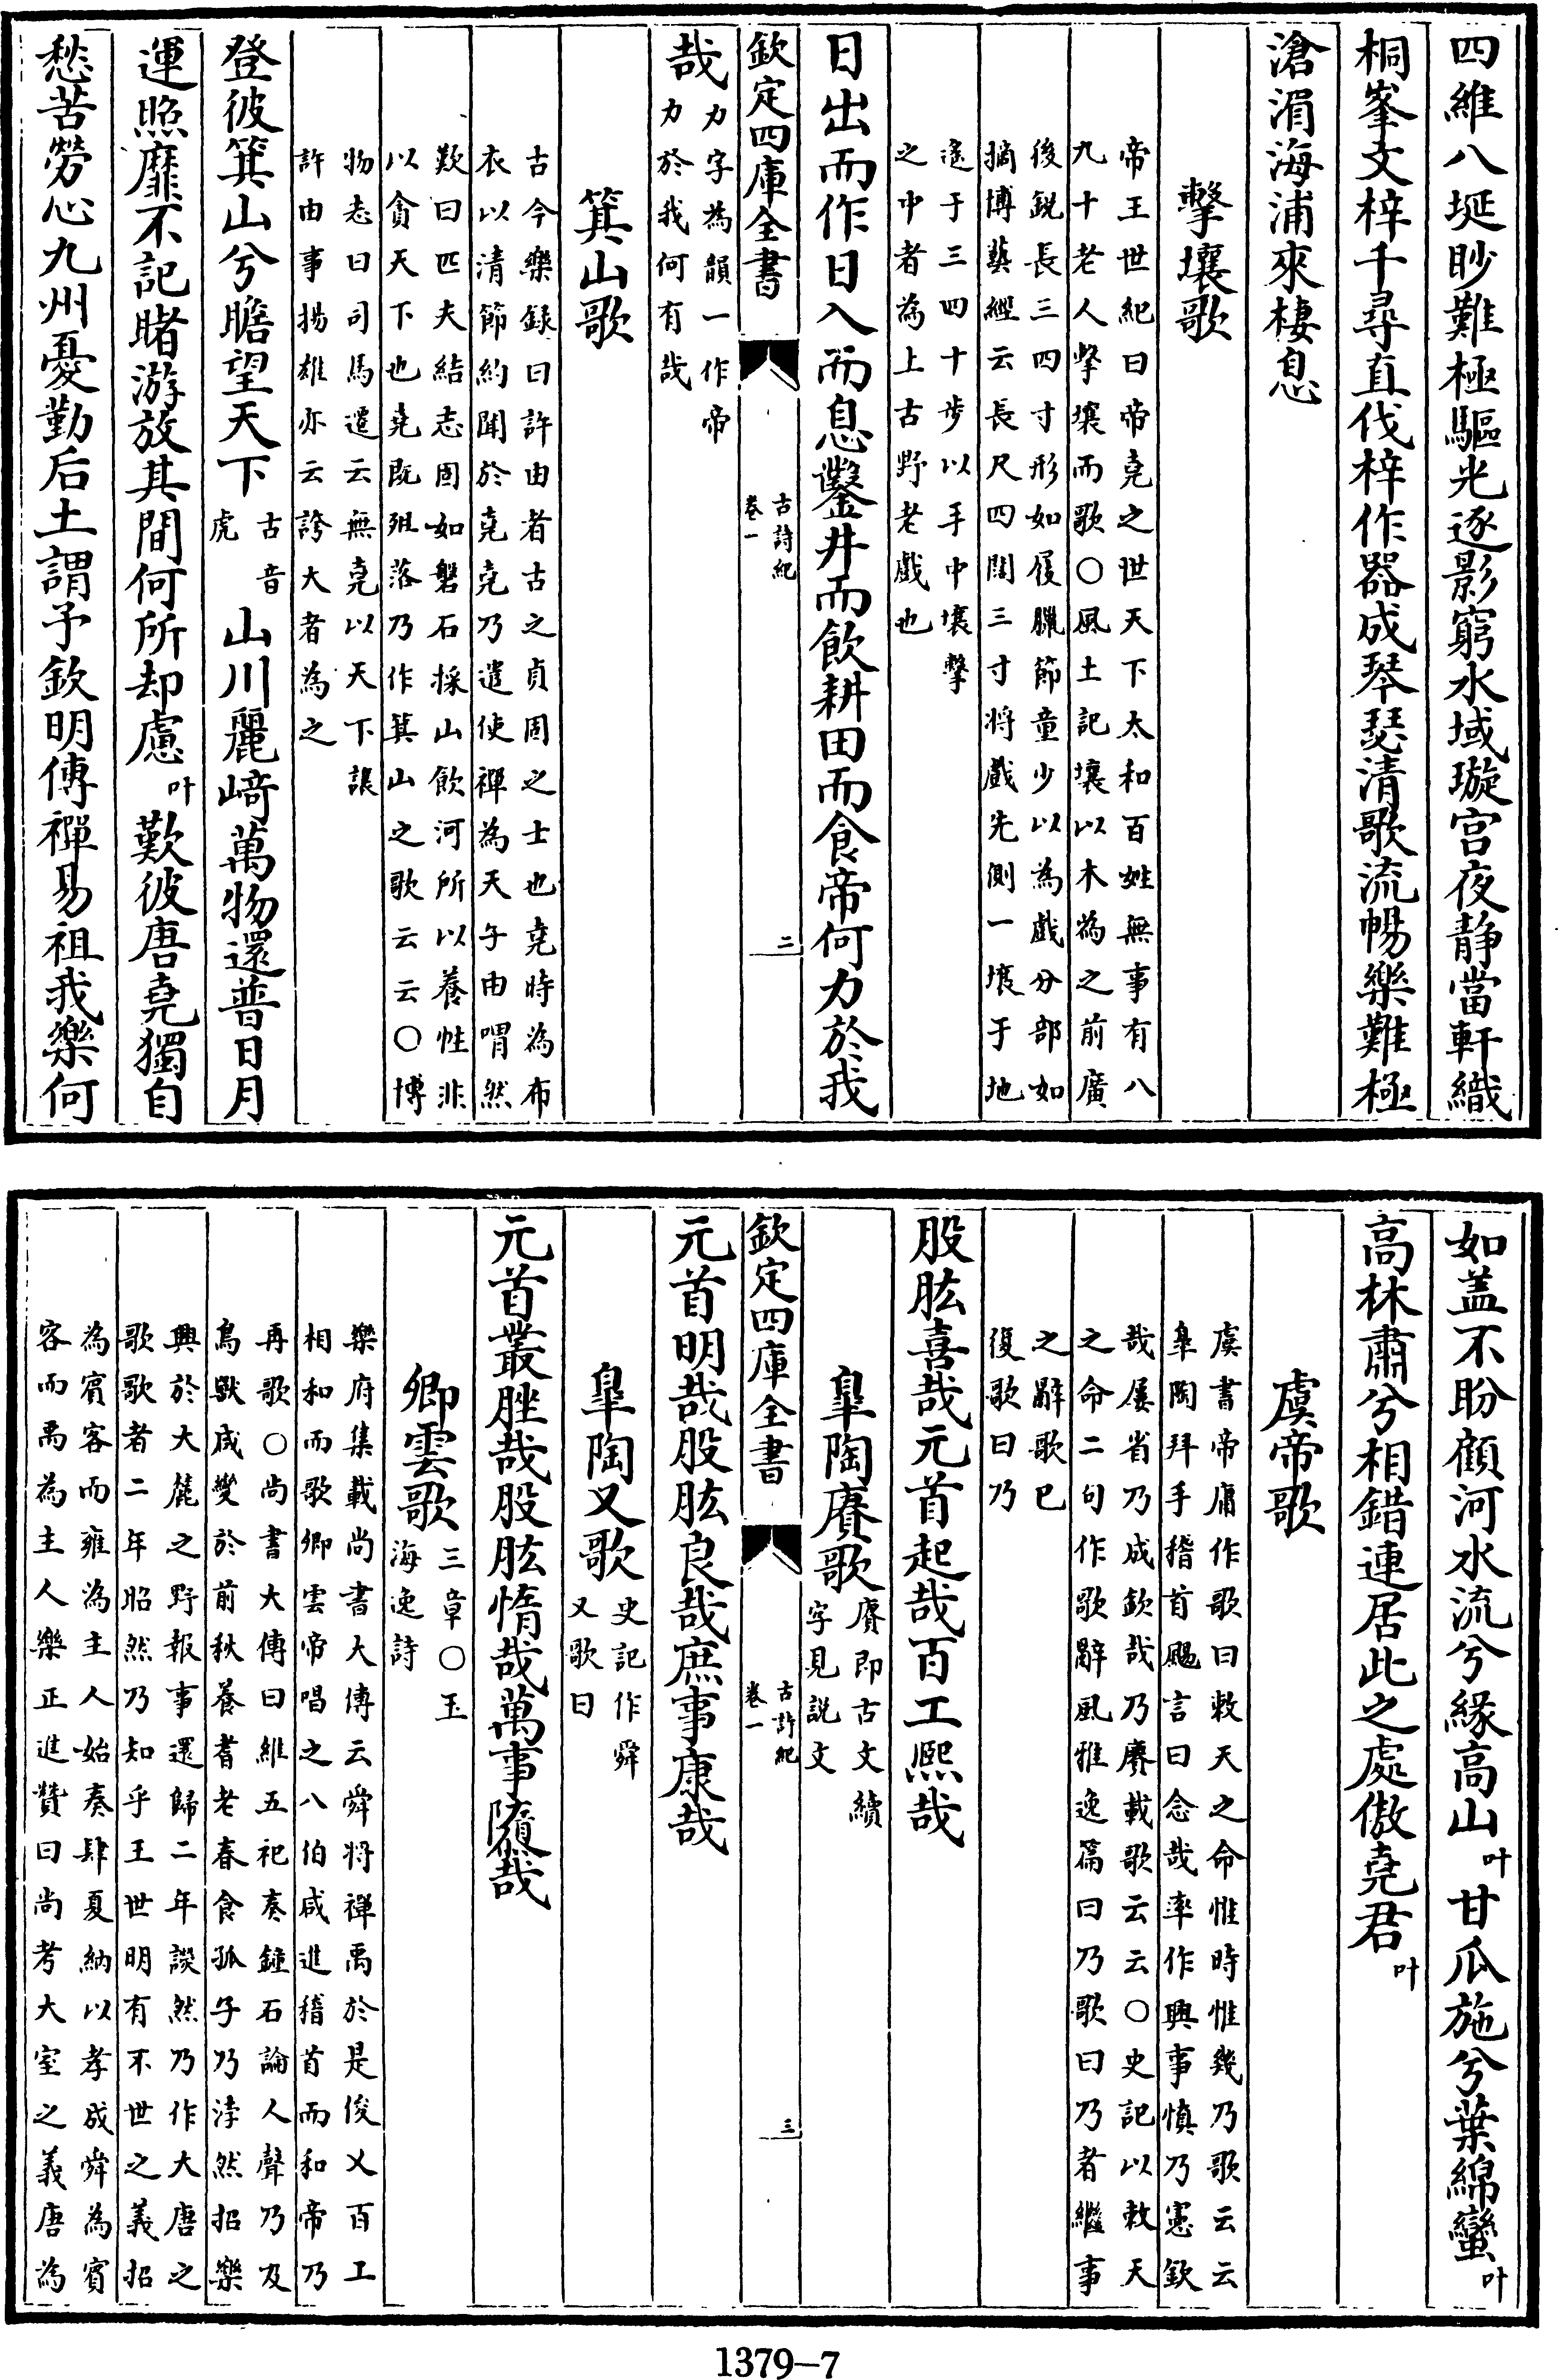 四維八埏眇難極驅光逐影窮水域璇宫夜靜當軒織
桐峯文梓千尋直伐梓作器成琴瑟清歌流暢樂難極
滄湄海浦來棲息
擊壤歌
帝王世紀曰帝堯之世天下太和百姓無事有八
九十老人擊壤而歌〇風土記壤以木為之前廣
後鋭長三四寸形如履臘節童少以為戲分部如
摘博藝經云長尺四闊三寸將戲先側一壤于地
遙于三四十步以手中壤擊
之中者為上古野老戲也
日出而作日入而息鑿井而飲耕田而食帝何力於我
欽定四庫全書
古詩紀
卷一
二
哉
力字為韻一作帝
力於我何有哉
箕山歌
古今樂録曰許由者古之貞固之士也堯時為布
衣以清節約聞於堯堯乃遣使禪為天子由喟然
歎曰匹夫結志固如磐石採山飲河所以養性非
以貪天下也堯既殂落乃作箕山之歌云云〇博
物志曰司馬遷云無堯以天下讓
許由事揚雄亦云誇大者為之
登彼箕山兮瞻望天下
古音
虎
山川麗﨑萬物還普日月
運照靡不記睹游放其間何所却慮
叶
歎彼唐堯獨自
愁苦勞心九州憂勤后土謂予欽明傳禪易祖我樂何
如盖不盼顧河水流兮緣高山
叶
甘瓜施兮葉綿蠻
叶
高林肅兮相錯連居此之處傲堯君
叶
虞帝歌
虞書帝庸作歌曰敕天之命惟時惟幾乃歌云云
皐陶拜手稽首颺言曰念哉率作興事慎乃憲欽
哉屢省乃成欽哉乃賡載歌云云〇史記以敕天
之命二句作歌辭風雅逸篇曰乃歌曰乃者繼事
之辭歌已
復歌曰乃
股肱喜哉元首起哉百工熙哉
皐陶賡歌
賡即古文續
字見説文
欽定四庫全書
古詩紀
卷一
三
元首明哉股肱良哉庶事康哉
皐陶又歌
史記作舜
又歌曰
元首叢脞哉股肱惰哉萬事隳哉
卿雲歌
三章〇玉
海逸詩
樂府集載尚書大傅云舜將禪禹於是俊乂百工
相和而歌卿雲帝唱之八伯咸進稽首而和帝乃
再歌〇尚書大傳曰維五祀奏鍾石論人聲乃及
鳥獸咸變於前秋養耆老春食孤子乃浡然招樂
興於大麓之野報事還歸二年談然乃作大唐之
歌歌者二年昭然乃知乎王世明有不世之義招
為賓客而雍為主人始奏肆夏納以孝成舜為賓
客而禹為主人樂正進贊曰尚考大室之義唐為
1379—7